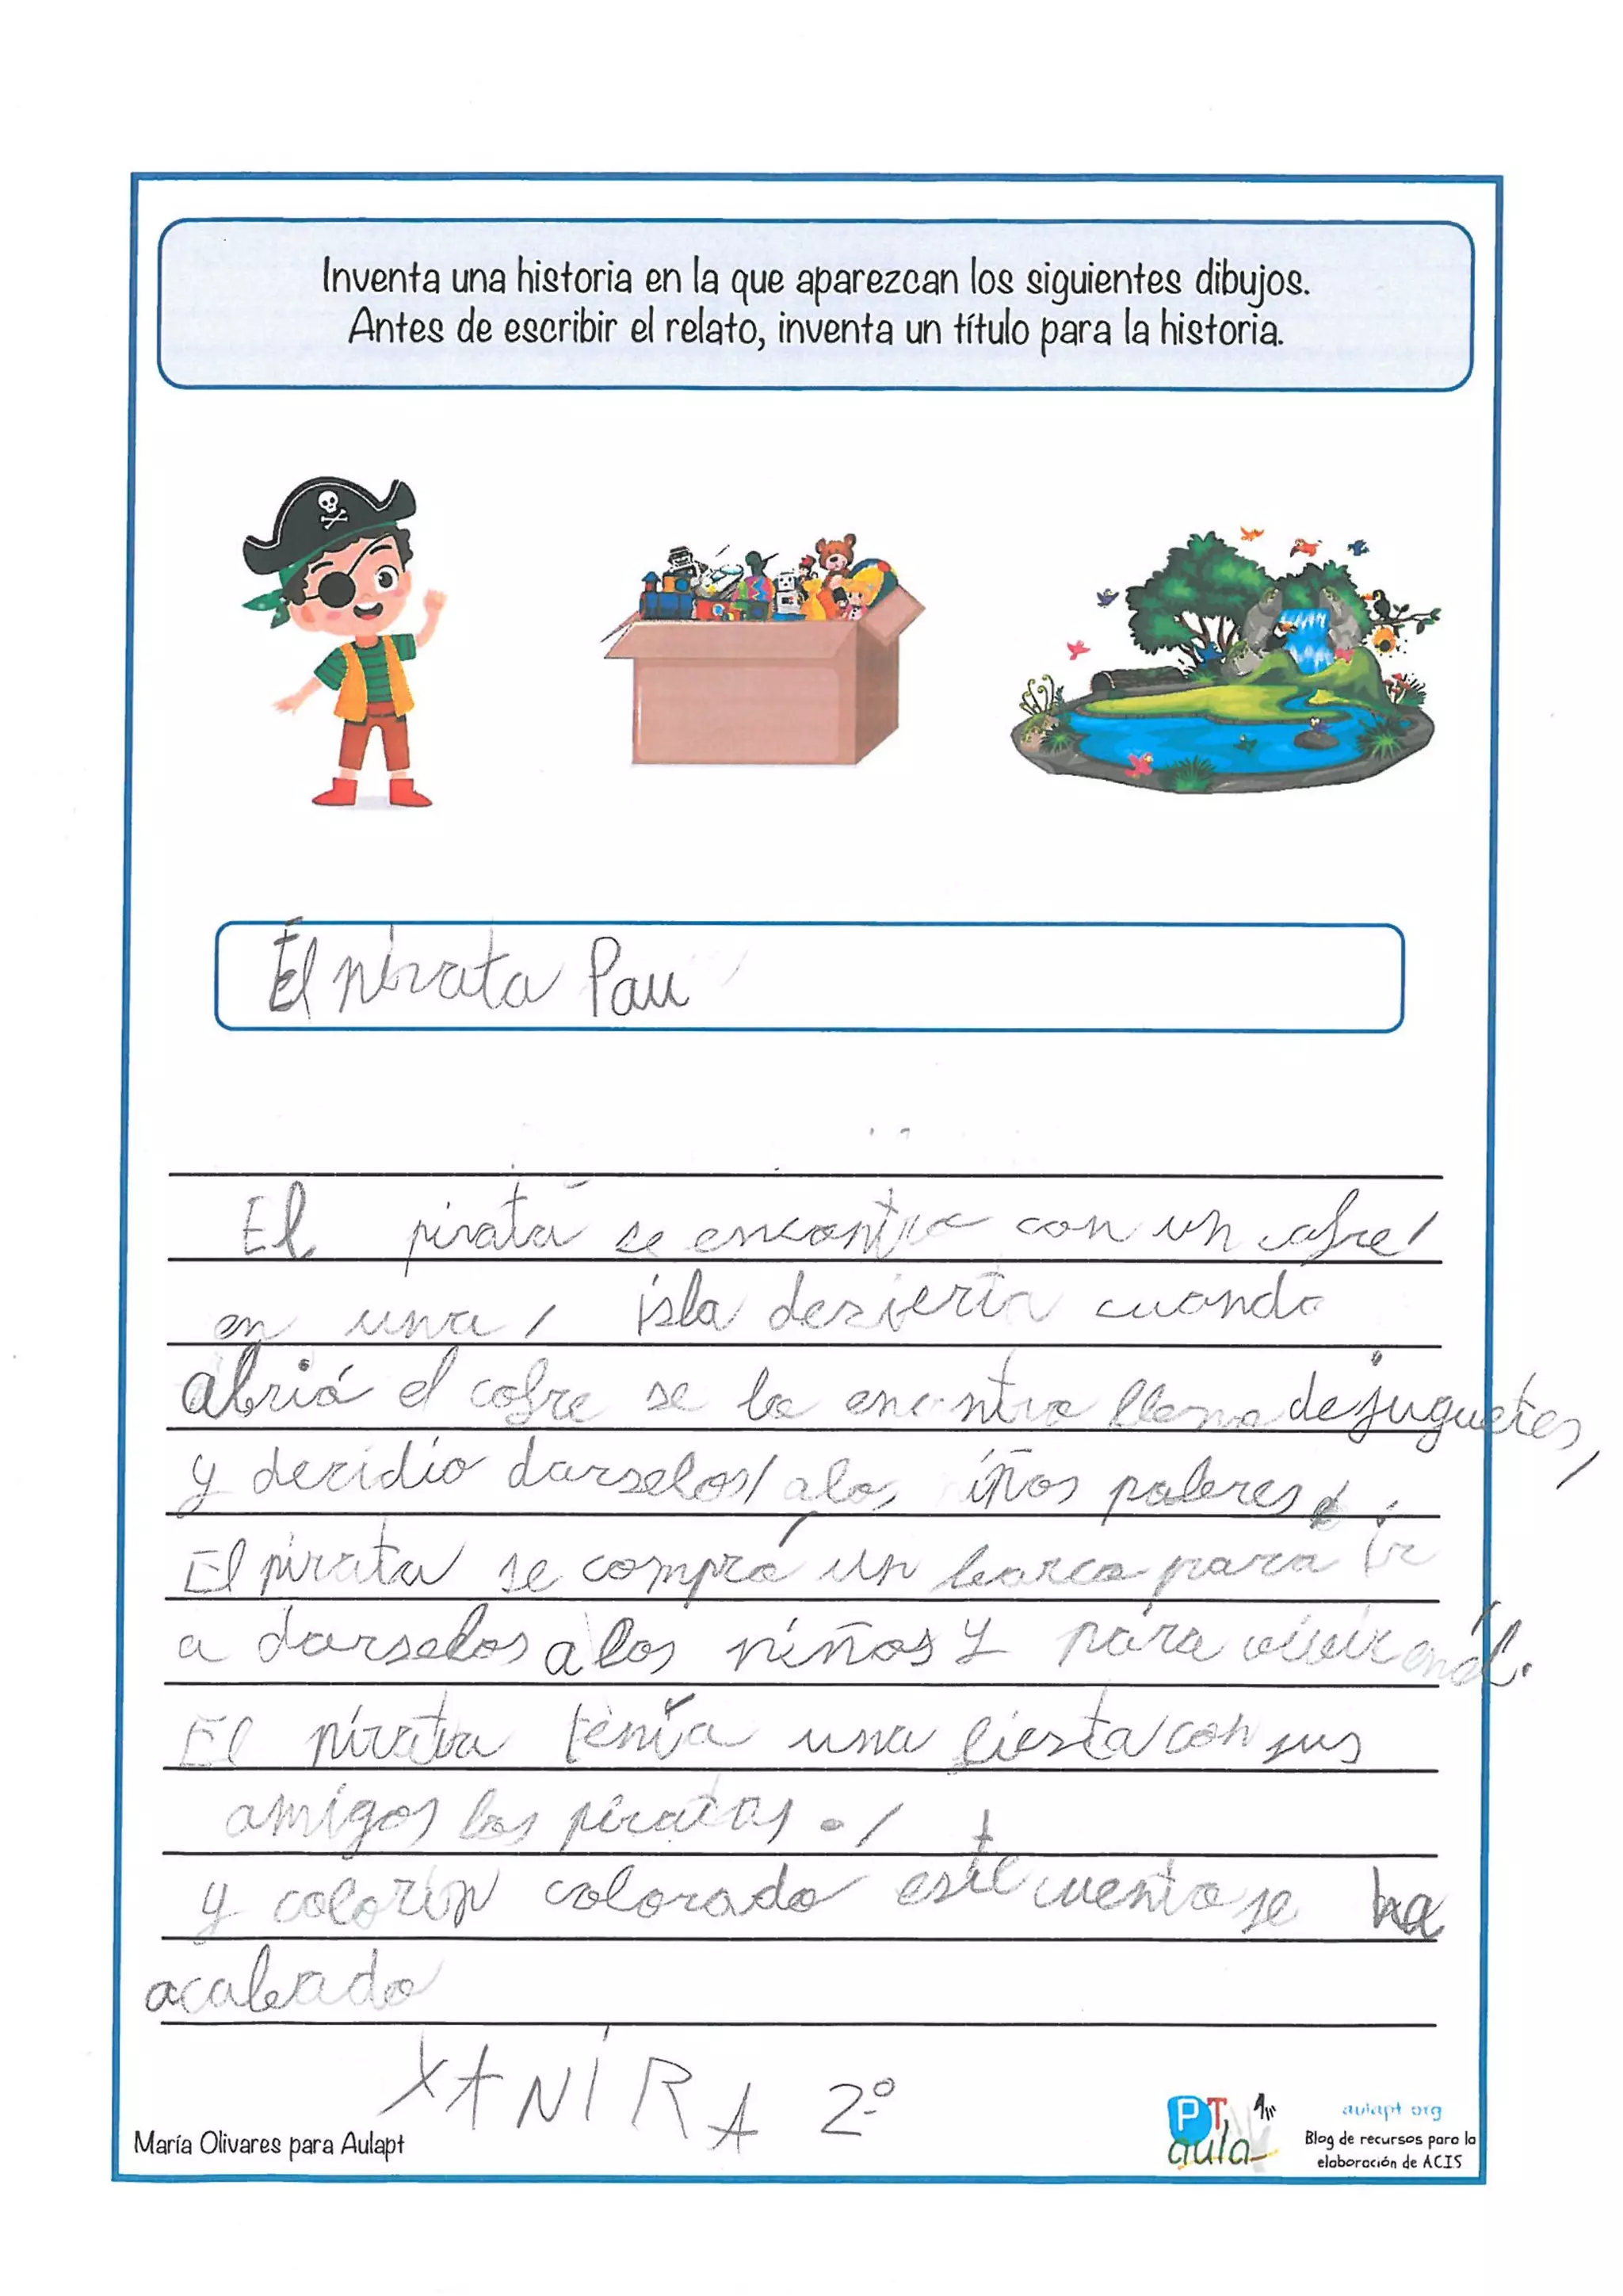 Inventa una historia en la que aparezcan los siguientes dibujos.
Antes de escribir el relato, inventa un título para la historia.
El pirata Pau
El pirata se encontro con un cofre/
en una/ isla desierta cuando
abrió el cofre se lo encontro lleno de juguetes,
y decidio darselos/ a los iños pobres.
El pirata se compró un barco para ir
a darselos a los niños y para vivir en él.
El pirata tenía una fiesta/ con sus
amigos los piratas. /
y colorin colorado este cuento se ha
acabado
XANIRA 2º
María Olivares para Aulapt
PT
aula
aulapt org
Blog de recursos para la
elaboración de ACIS